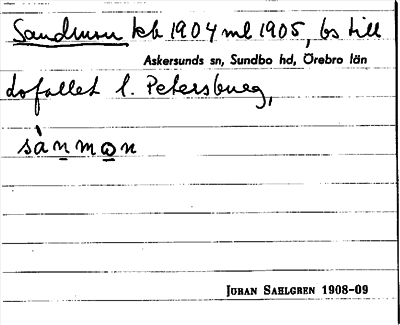 Sandmon kb 1904 ml 1905, bs till
Askersunds sn, Sundbo hd, Örebro län
dofallet l. Petersburg,
sànmon
JÖRAN SAHLGREN 1908-09